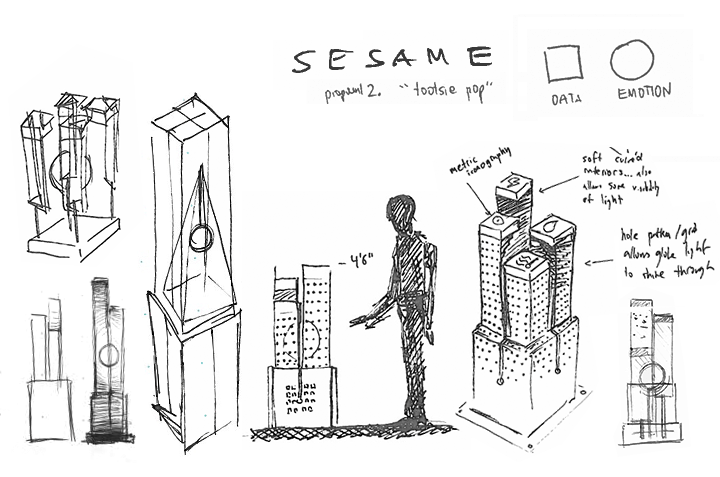 SESAME
proposal 2. "tootsie pop"
DATA
EMOTION
metric
iconography
soft curved
interiors... also
allow some visibility
of light
hole pattern/grid
allows globe light
to shine through
4'6"